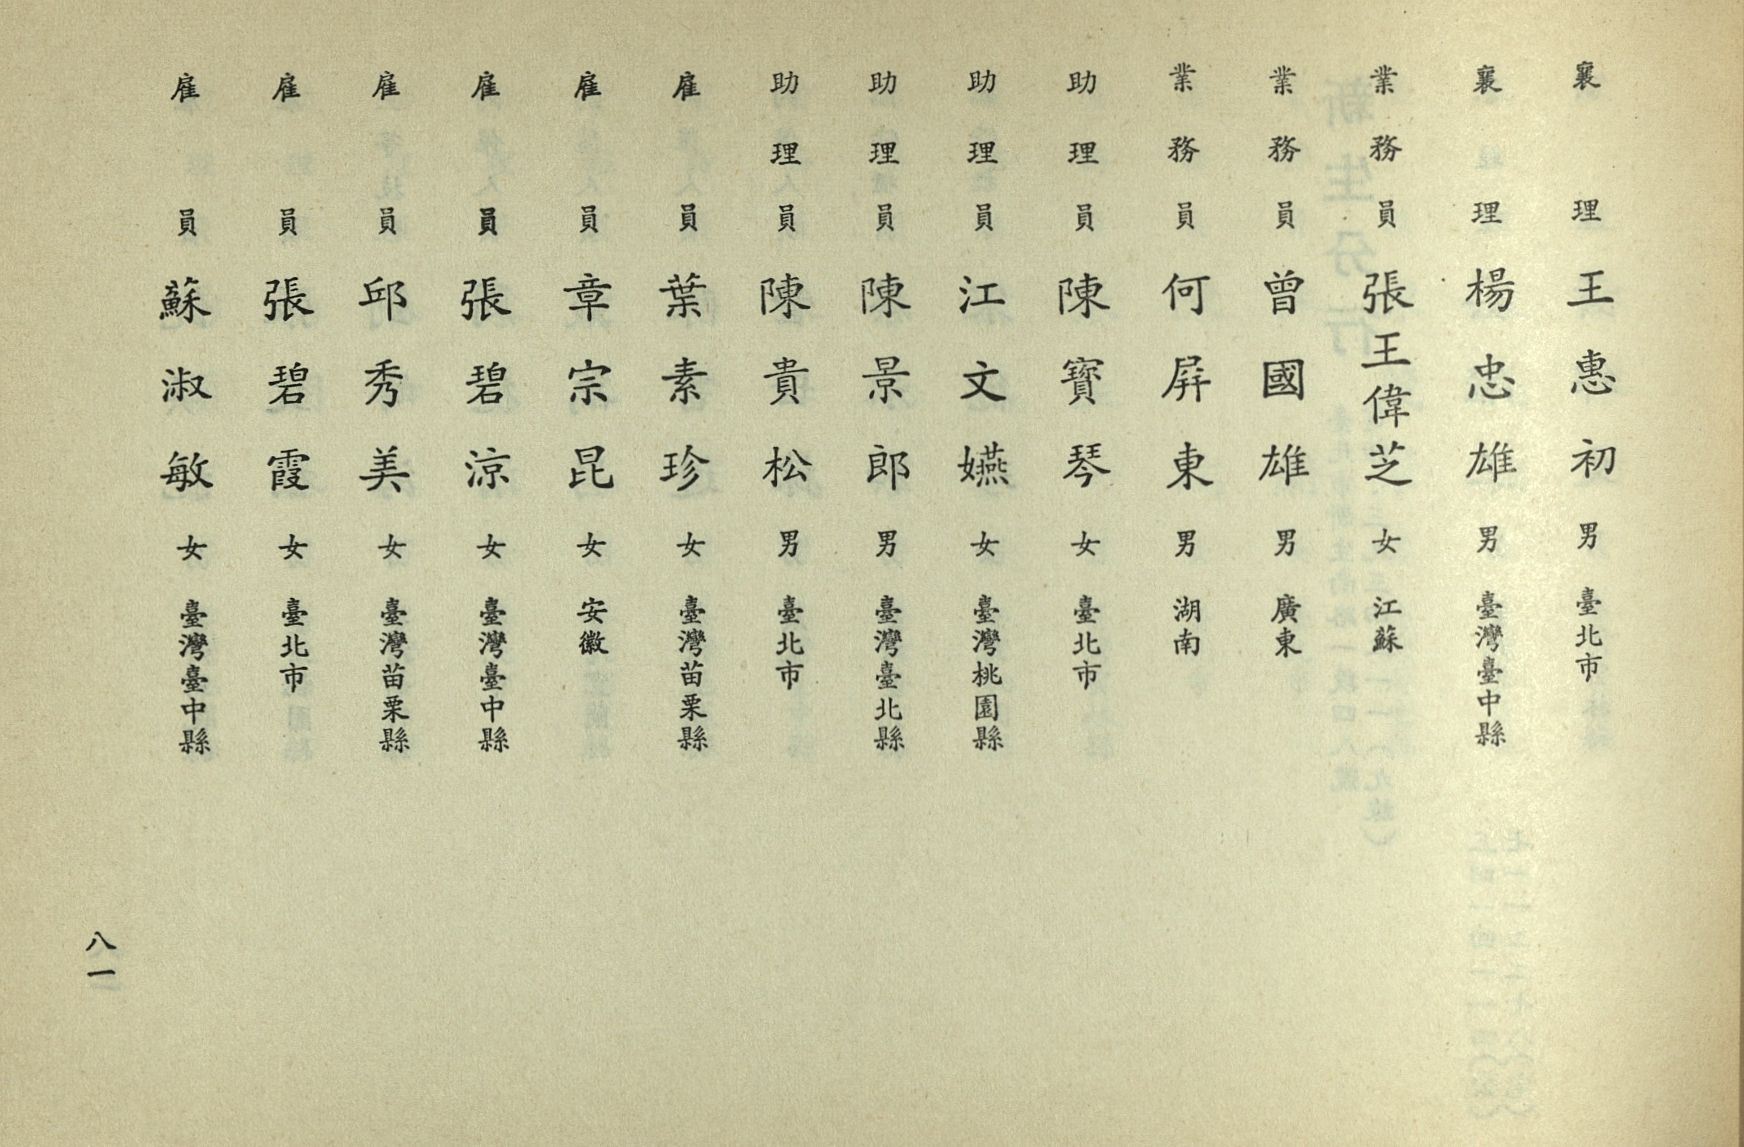 襄理王惠初男臺北市
襄理楊忠雄男臺灣臺中縣
業務員張王偉芝女江蘇
業務員曾國雄男廣東
業務員何屏東男湖南
助理員陳寶琴女臺北市
助理員江文嬿女臺灣桃園縣
助理員陳景郎男臺灣臺北縣
助理員陳貴松男臺北市
雇員葉素珍女臺灣苗栗縣
雇員章宗昆女安徽
雇員張碧涼女臺灣臺中縣
雇員邱秀美女臺灣苗栗縣
雇員張碧霞女臺北市
雇員蘇淑敏女臺灣臺中縣
八一